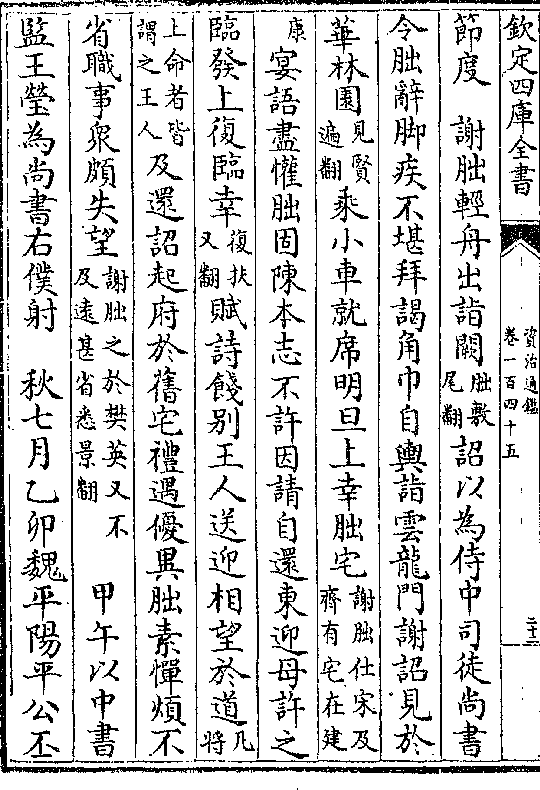 欽定四庫全書
資治通鑑
卷一百四十五
二十二
節度　謝朏輕舟出詣闕朏敷尾翻詔以為侍中司徒尚書
令朏辭脚疾不堪拜謁角巾自輿詣雲龍門謝詔見於
華林園見賢遍翻乘小車就席明旦上幸朏宅謝朏仕宋及齊有宅在建
康宴語盡懽朏固陳本志不許因請自還東迎母許之
臨發上復臨幸復扶又翻賦詩餞别王人送迎相望於道凡將
上命者皆謂之王人及還詔起府於舊宅禮遇優異朏素憚煩不
省職事衆頗失望謝朏之於樊英又不及遠甚省悉景翻　甲午以中書
監王瑩為尚書右僕射　秋七月乙卯魏平陽平公丕